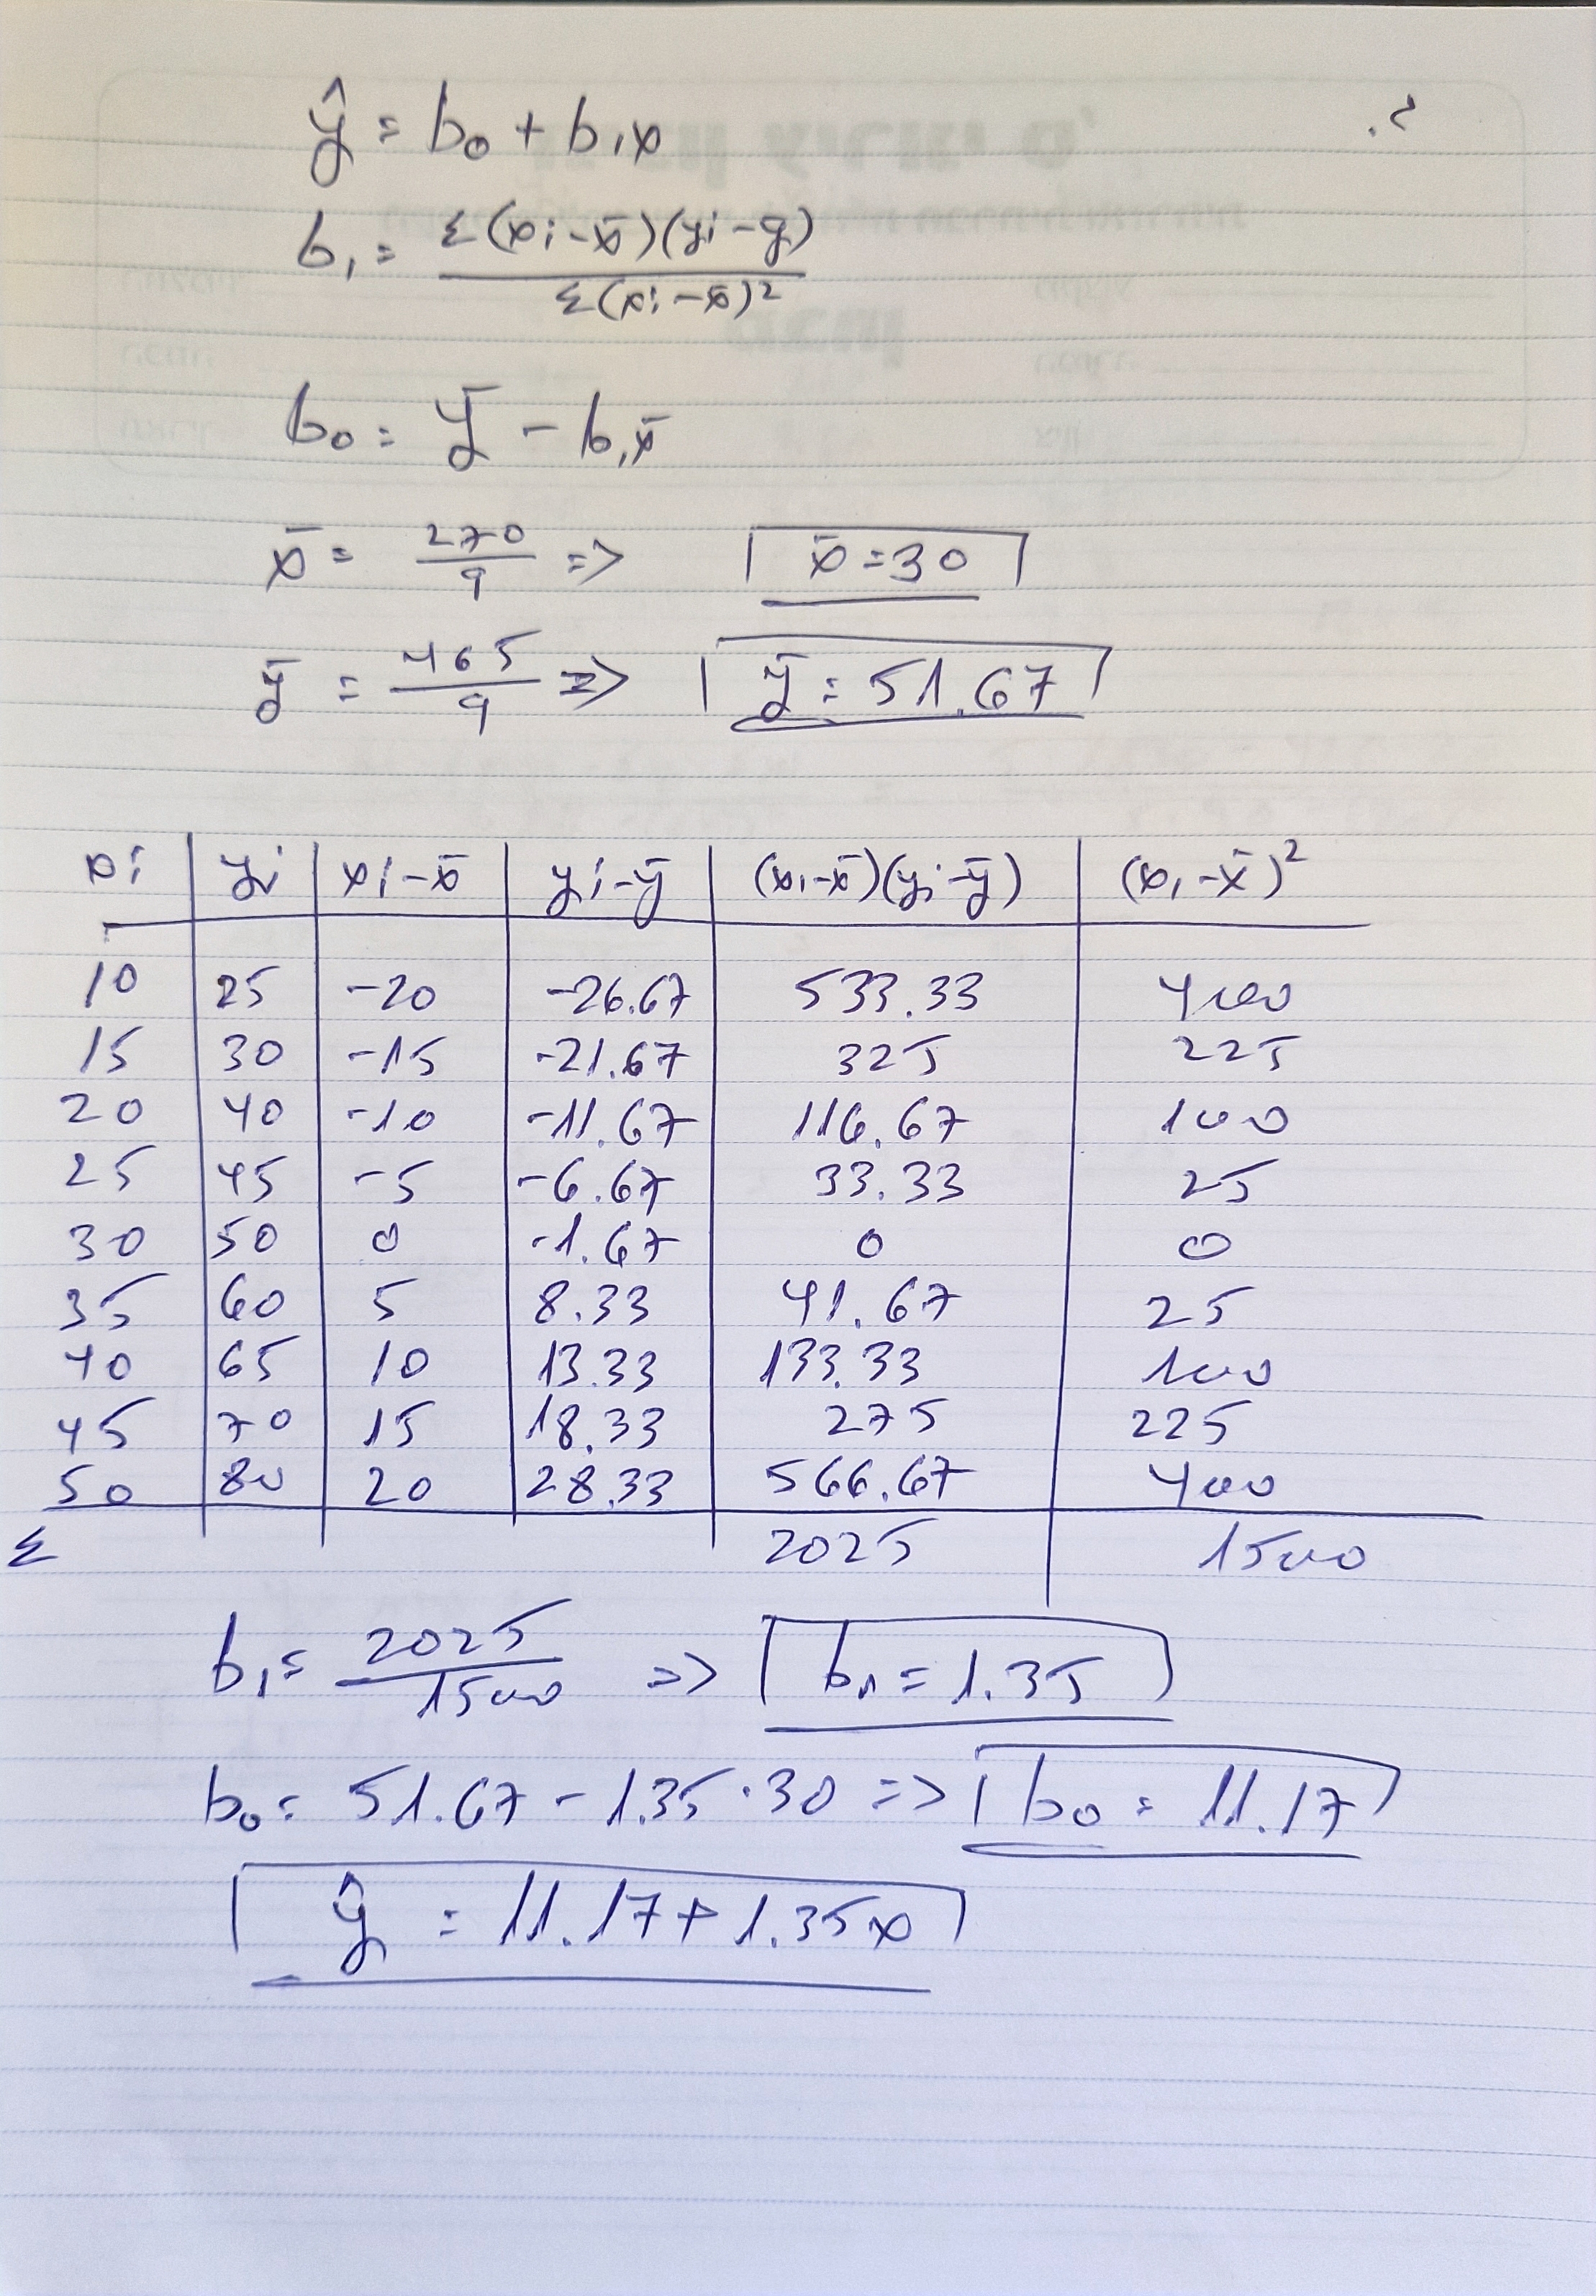 .2
ŷ = b₀ + b₁x
b₁ = Σ(xi - x̄)(yi - ȳ) / Σ(xi - x̄)²
b₀ = ȳ - b₁x̄
x̄ = 270/9 => x̄ = 30
ȳ = 465/9 => ȳ = 51.67
xi | yi | xi - x̄ | yi - ȳ | (xi - x̄)(yi - ȳ) | (xi - x̄)²
10 | 25 | -20 | -26.67 | 533.33 | 400
15 | 30 | -15 | -21.67 | 325 | 225
20 | 40 | -10 | -11.67 | 116.67 | 100
25 | 45 | -5 | -6.67 | 33.33 | 25
30 | 50 | 0 | -1.67 | 0 | 0
35 | 60 | 5 | 8.33 | 41.67 | 25
40 | 65 | 10 | 13.33 | 133.33 | 100
45 | 70 | 15 | 18.33 | 275 | 225
50 | 80 | 20 | 28.33 | 566.67 | 400
Σ | 2025 | 1500
b₁ = 2025/1500 => b₁ = 1.35
b₀ = 51.67 - 1.35 · 30 => b₀ = 11.17
ŷ = 11.17 + 1.35x